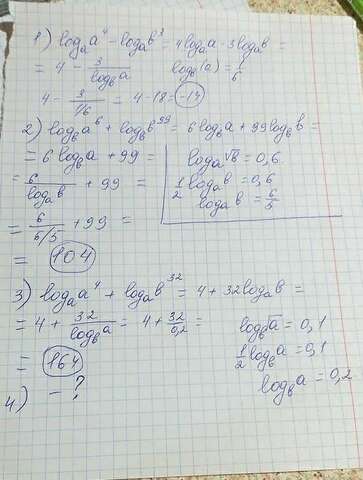 1) logₐa⁴ - logₐb³ = 4logₐa - 3logₐb =
= 4 - 3/log_b a    log_b(a) = 1/6
4 - 3/(1/6) = 4 - 18 = -14
2) log_b a⁶ + log_b b⁹⁹ = 6log_b a + 99log_b b =
= 6log_b a + 99 =    logₐ√b = 0,6
= 6/logₐb + 99 =    1/2 logₐb = 0,6
logₐb = 6/5
= 6/(6/5) + 99 =
= 104
3) logₐa⁴ + logₐb³² = 4 + 32logₐb =
= 4 + 32/log_b a = 4 + 32/0,2 =    log_b√a = 0,1
= 164    1/2 log_b a = 0,1
4) - ?    log_b a = 0,2